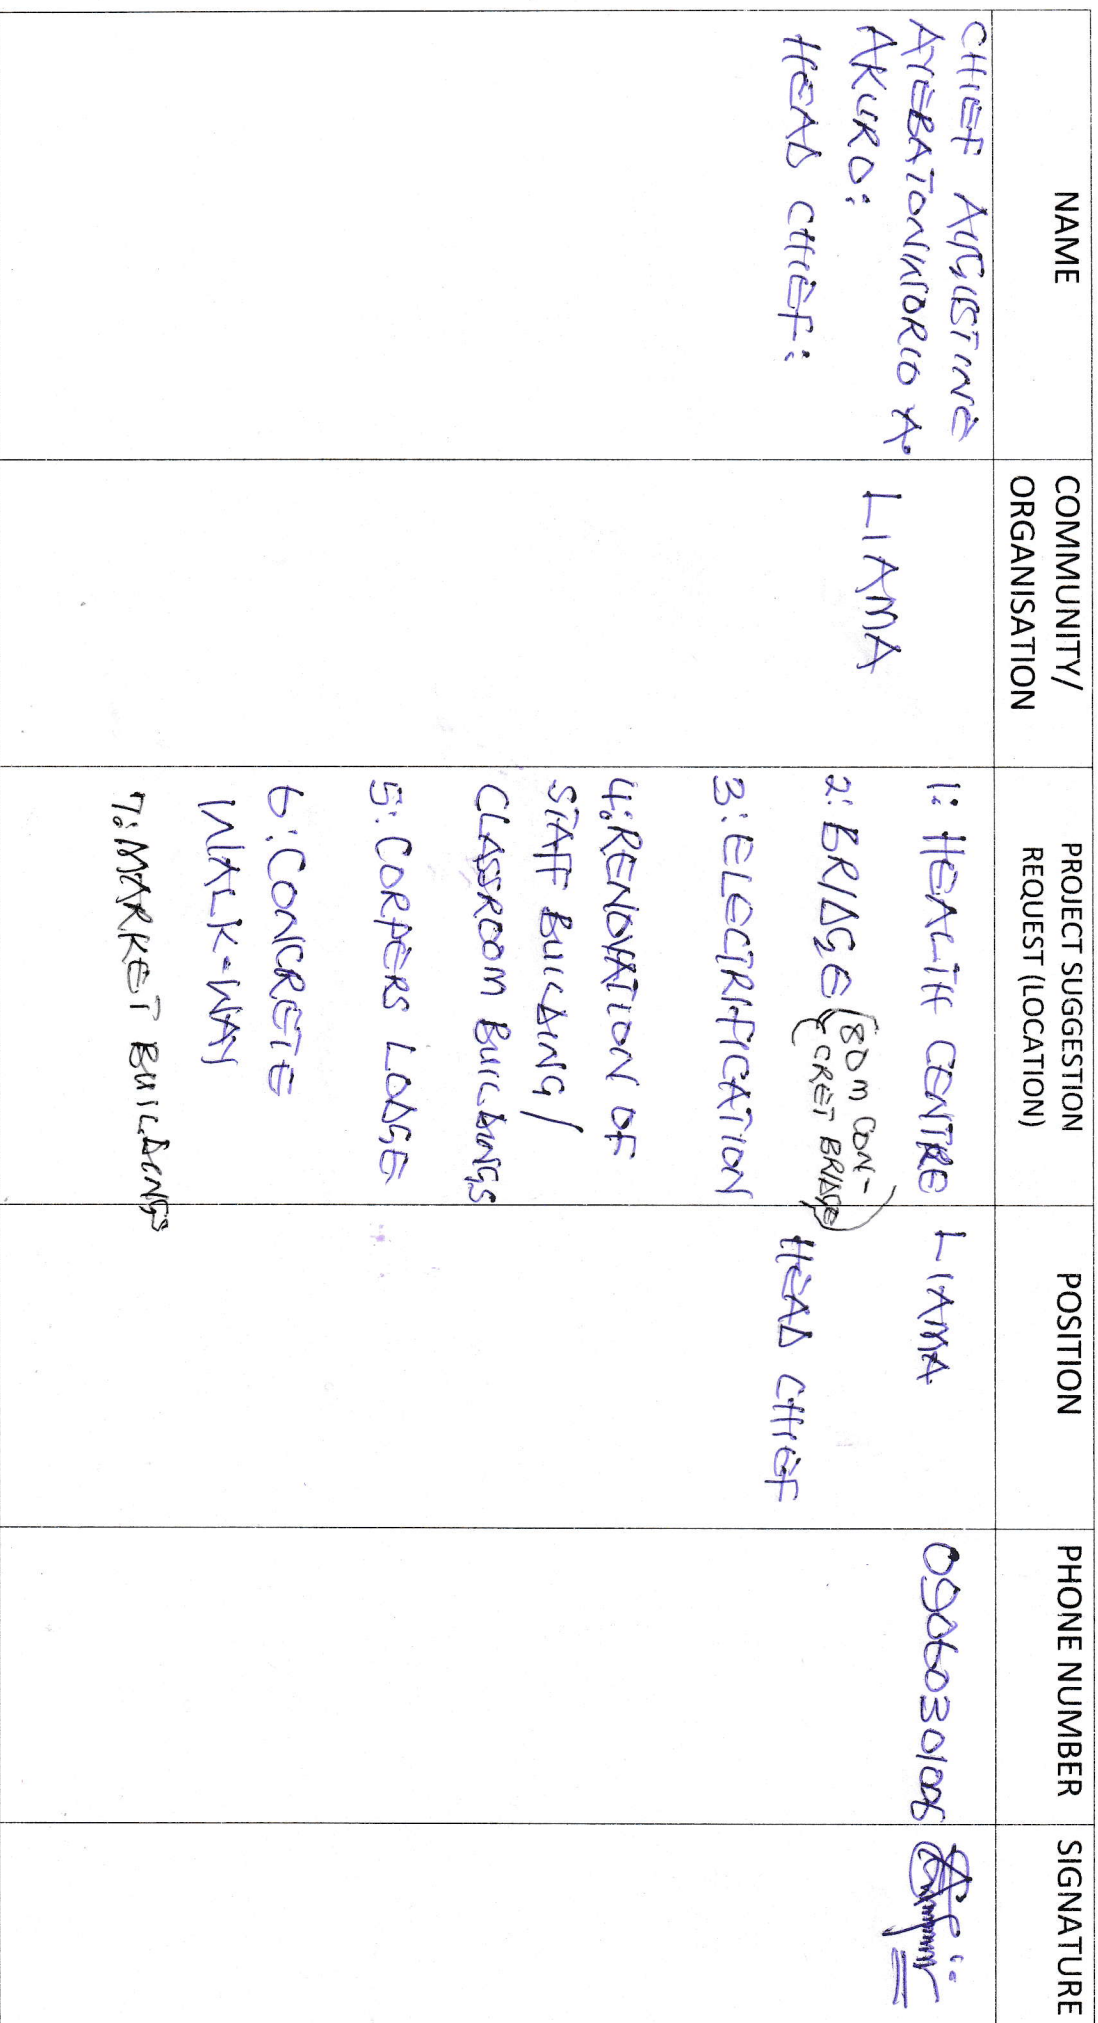 NAME
COMMUNITY/
ORGANISATION
PROJECT SUGGESTION
REQUEST (LOCATION)
POSITION
PHONE NUMBER
SIGNATURE
CHIEF AUGUSTINE
AYEBATONINIORIO A.
AKURO:
HEAD CHIEF:
LIAMA
1: HEALTH CENTRE
2: BRIDGE (80m CON-
CRET BRIDGE)
3: ELECTRIFICATION
4: RENOVATION OF
STAFF BUILDING/
CLASSROOM BUILDINGS
5: CORPERS LODGE
6: CONCRETE
WALK-WAY
7: MARKET BUILDINGS
LIAMA
HEAD CHIEF
09060301006